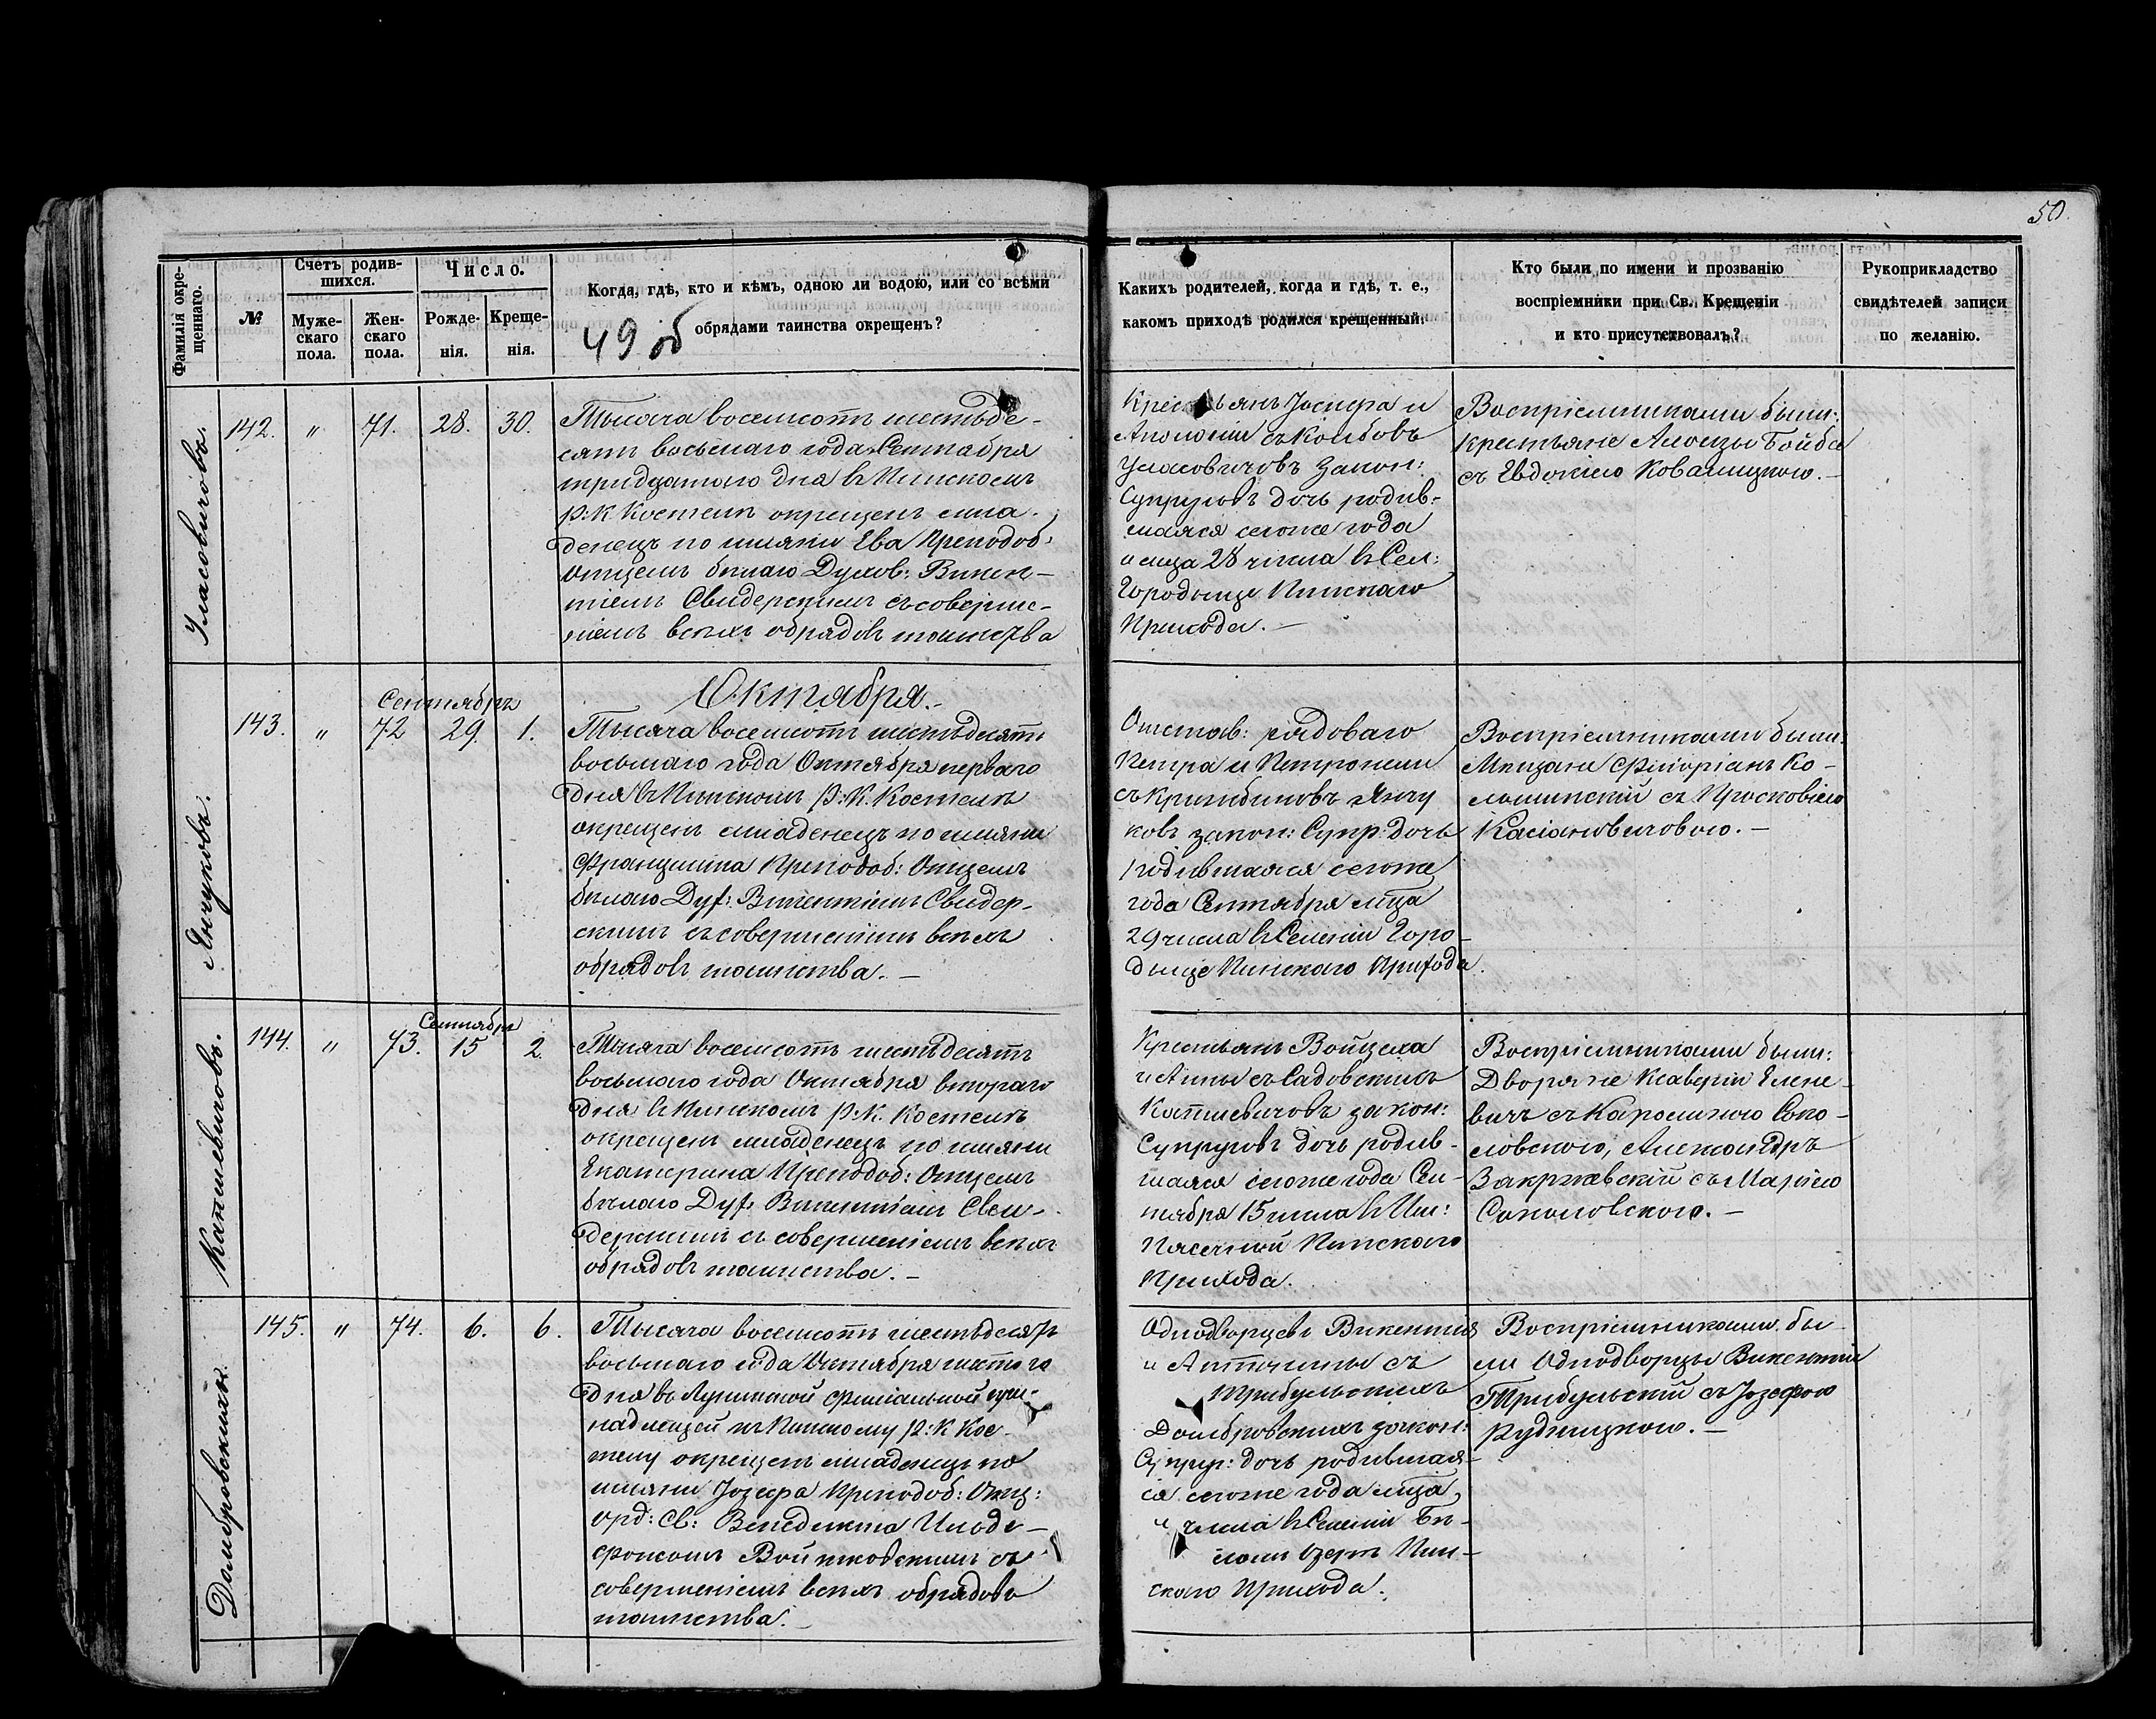 50.
Фамилія окре-
щеннаго.
№
Счетъ родив-
шихся.
Муже-
скаго
пола.
Жен-
скаго
пола.
Число.
Рожде-
нія.
Креще-
нія.
Когда, гдѣ, кто и кѣмъ, одною ли водою, или со всѣми
обрядами таинства окрещенъ?
49 об
Какихъ родителей, когда и гдѣ, т. е.,
какомъ приходѣ родился крещенный.
Кто были по имени и прозванію
воспріемники при Св. Крещеніи
и кто присутствовалъ?
Рукоприкладство
свидѣтелей записи
по желанію.
142. " 71. 28. 30.
Тысяча восемсотъ шестьде-
сятъ восьмаго года Сентября
тридцатаго дня въ Пинскомъ
Р: К Костелѣ окрещенъ мла-
денецъ по имяни Ева Преподоб:
Отцемъ бѣлаго Духов: Викен-
тіемъ Свидерскимъ съ соверше-
ніемъ всѣхъ обрядовъ таинства
Іосифа и
Аполоніи съ
Закон:
Супруговъ дочь родив-
шаяся сегоже года
и мца 28 числа въ Сел:
Городыще Пинскаго
Прихода. —
Воспріемниками были:
крестьяне Алоизы Бойба
съ Евдокіею Ковалицкою. —
Янчуковъ.
Сентябръ
143. " 72 29. 1.
Октября. -
Тысяча восемсотъ шестьдесятъ
восьмаго года Октября перваго
дня въ Пинскомъ Р: К. Костелѣ
окрещенъ младенецъ по имяни
Францишка Преподоб: Отцемъ
бѣлаго Дух: Викентіемъ Свидер-
скимъ съ совершеніемъ всѣхъ
обрядовъ таинства. —
Отстав: рядоваго
Петра и Петронели
съ Янчу
ковъ закон: Супр: дочь
родившаяся сегоже
года Сентября мца
29 числа въ Селеніи Горо-
дыще Пинскаго Прихода.
Воспріемниками были:
Мѣщане Флоріанъ Ко-
съ Просковіею
Касіановичовою. —
144. " 73. Сентября 15 2.
Тысяча восемсотъ шестьдесятъ
восьмаго года Октября втораго
дня въ Пинскомъ Р: К. Костелѣ
окрещенъ младенецъ по имяни
Екатерина Преподоб: Отцемъ
бѣлаго Дух: Викентіемъ Сви-
дерскимъ съ совершеніемъ всѣхъ
обрядовъ таинства. —
Крестьянъ Войцеха
и Анны съ Садовскихъ
закон:
Супруговъ дочь родив-
шаяся сегоже года Сен-
тября 15 числа въ Им:
Пинскаго
Прихода.
Воспріемниками были:
Дворяне Ксаверій Елене-
вичъ съ Каролиною Соко-
ловскою, Александръ
Закржевскій съ Маріею
Сокаловскою. —
Домбровскихъ.
145. " 74. 6. 6.
Тысяча восемсотъ шестьдесятъ
восьмаго года Октября шестого
дня въ филіальной при-
надлежащей къ Пинскому Р: К Кос-
телу окрещенъ младенецъ по
имяни Іозефа Преподоб: Отц:
орд: Св: Венедикта Ильде-
фонсомъ Войтковскимъ съ
совершеніемъ всѣхъ обрядовъ
таинства. —
Однодворцевъ Викентія
и Антонины съ
Трибульскихъ
Домбровскихъ закон:
Супруг: дочь родившая-
ся сегоже года мца,
и числа въ Селеніи Бѣ-
ломъ Озерѣ Пин-
скаго Прихода.
Воспріемниками бы-
ли Однодворцы Викентій
Трибульскій съ Іозефою
Рудницкою. —